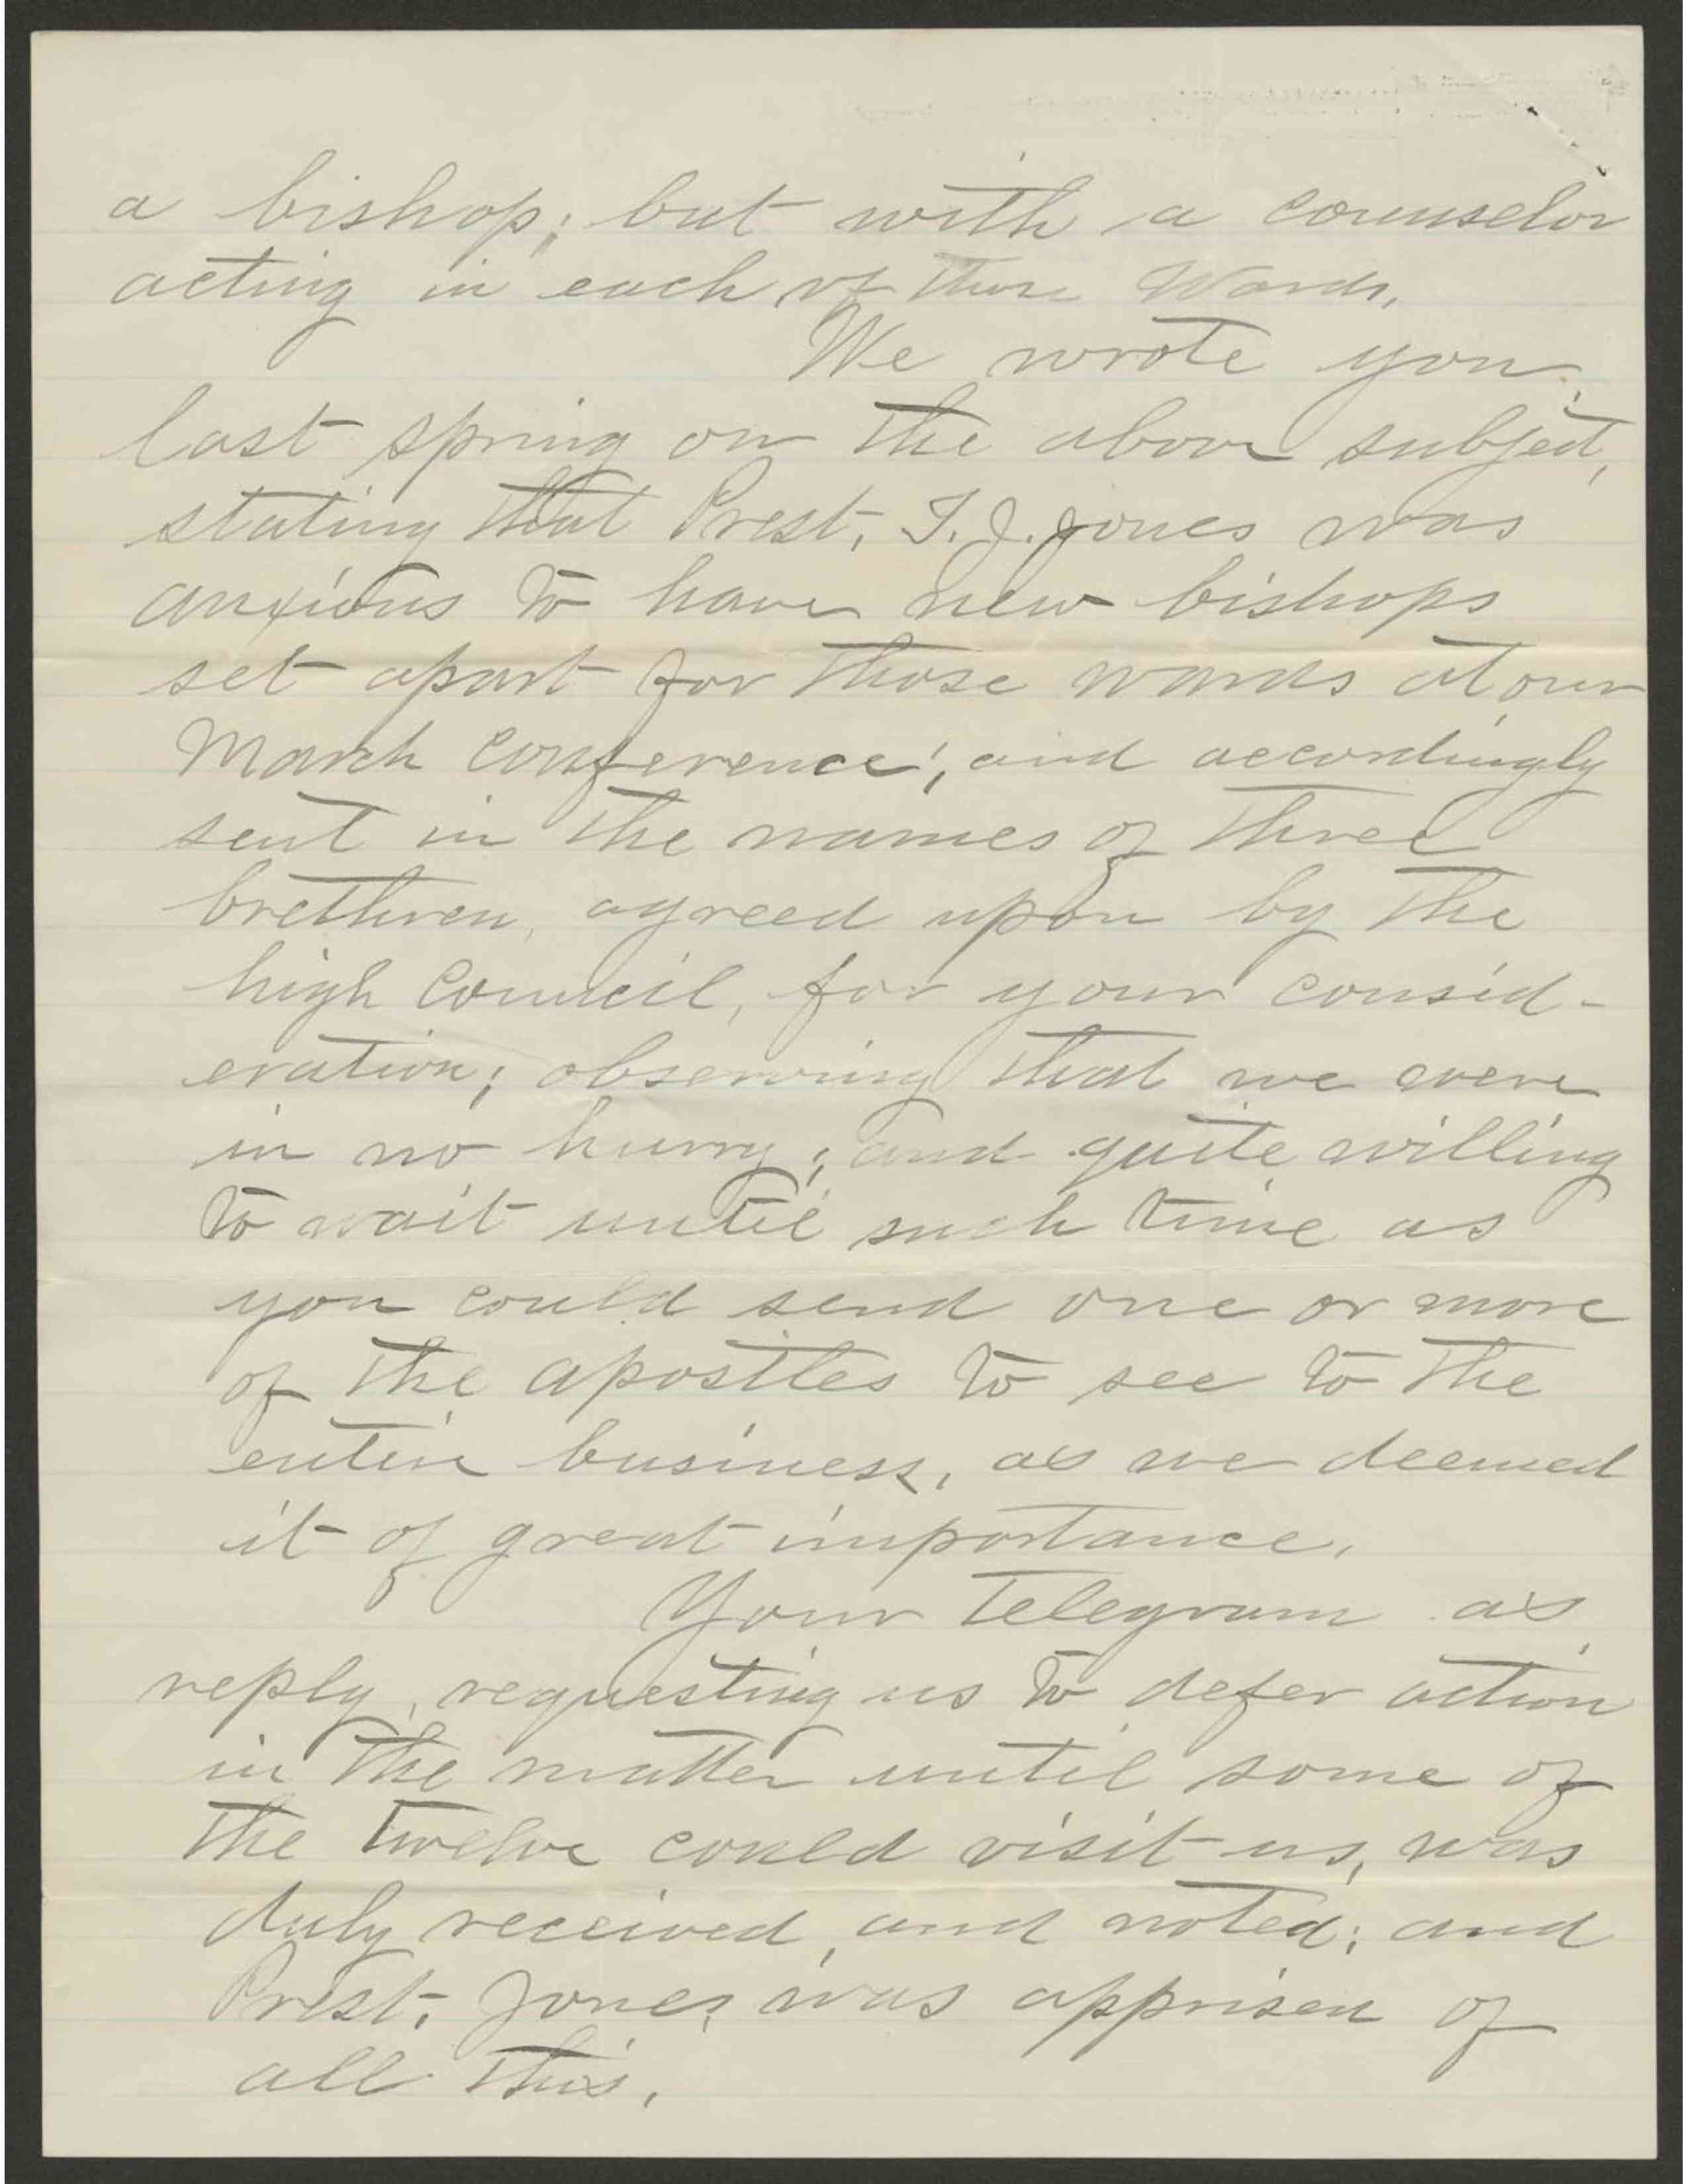 a bishop; but with a counselor
acting in each of these Wards.
We wrote you
last spring on the above subject,
stating that Prest. T. J. Jones was
anxious to have new bishops
set apart for those wards at our
March Conference; and accordingly
sent in the names of three
brethren, agreed upon by the
high Council, for your consid-
eration; observing that we were
in no hurry; and quite willing
to wait until such time as
you could send one or more
of the apostles to see to the
entire business, as we deemed
it of great importance.
Your Telegram as
reply, requesting us to defer action
in the matter until some of
the Twelve could visit us, was
duly received, and noted; and
Prest. Jones was apprised of
all this.